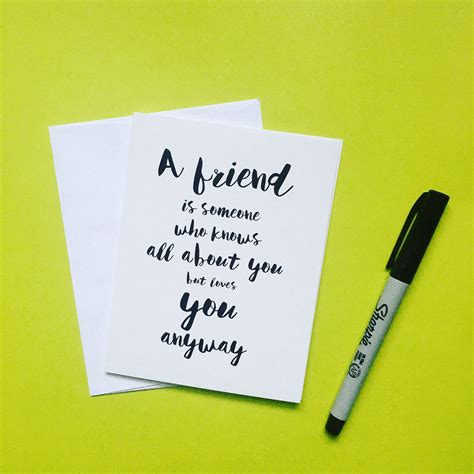 A friend
is someone
who knows
all about you
but loves
you
anyway
Sharpie